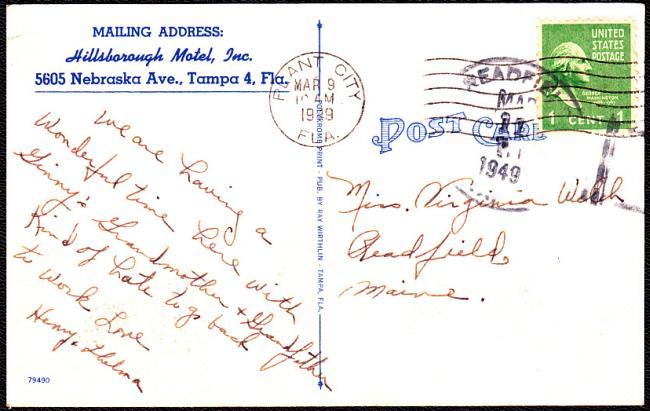 MAILING ADDRESS:
Hillsborough Motel, Inc.
5605 Nebraska Ave., Tampa 4, Fla.
We are having a
Wonderful time here with
Ginny's Grandmother & Grandfather
Kind of hate to go back
to work Love
Henry & Thelma
79490
PLANT CITY
MAR 9
10 AM
1949
FLA.
PRINT - PUB. BY RAY WIRTHLIN - TAMPA, FLA.
POST CARD
READFIELD
MAR
1949
UNITED
STATES
POSTAGE
GEORGE
WASHINGTON
1 CENT 1
Miss. Virginia Welch
Readfield,
Maine.